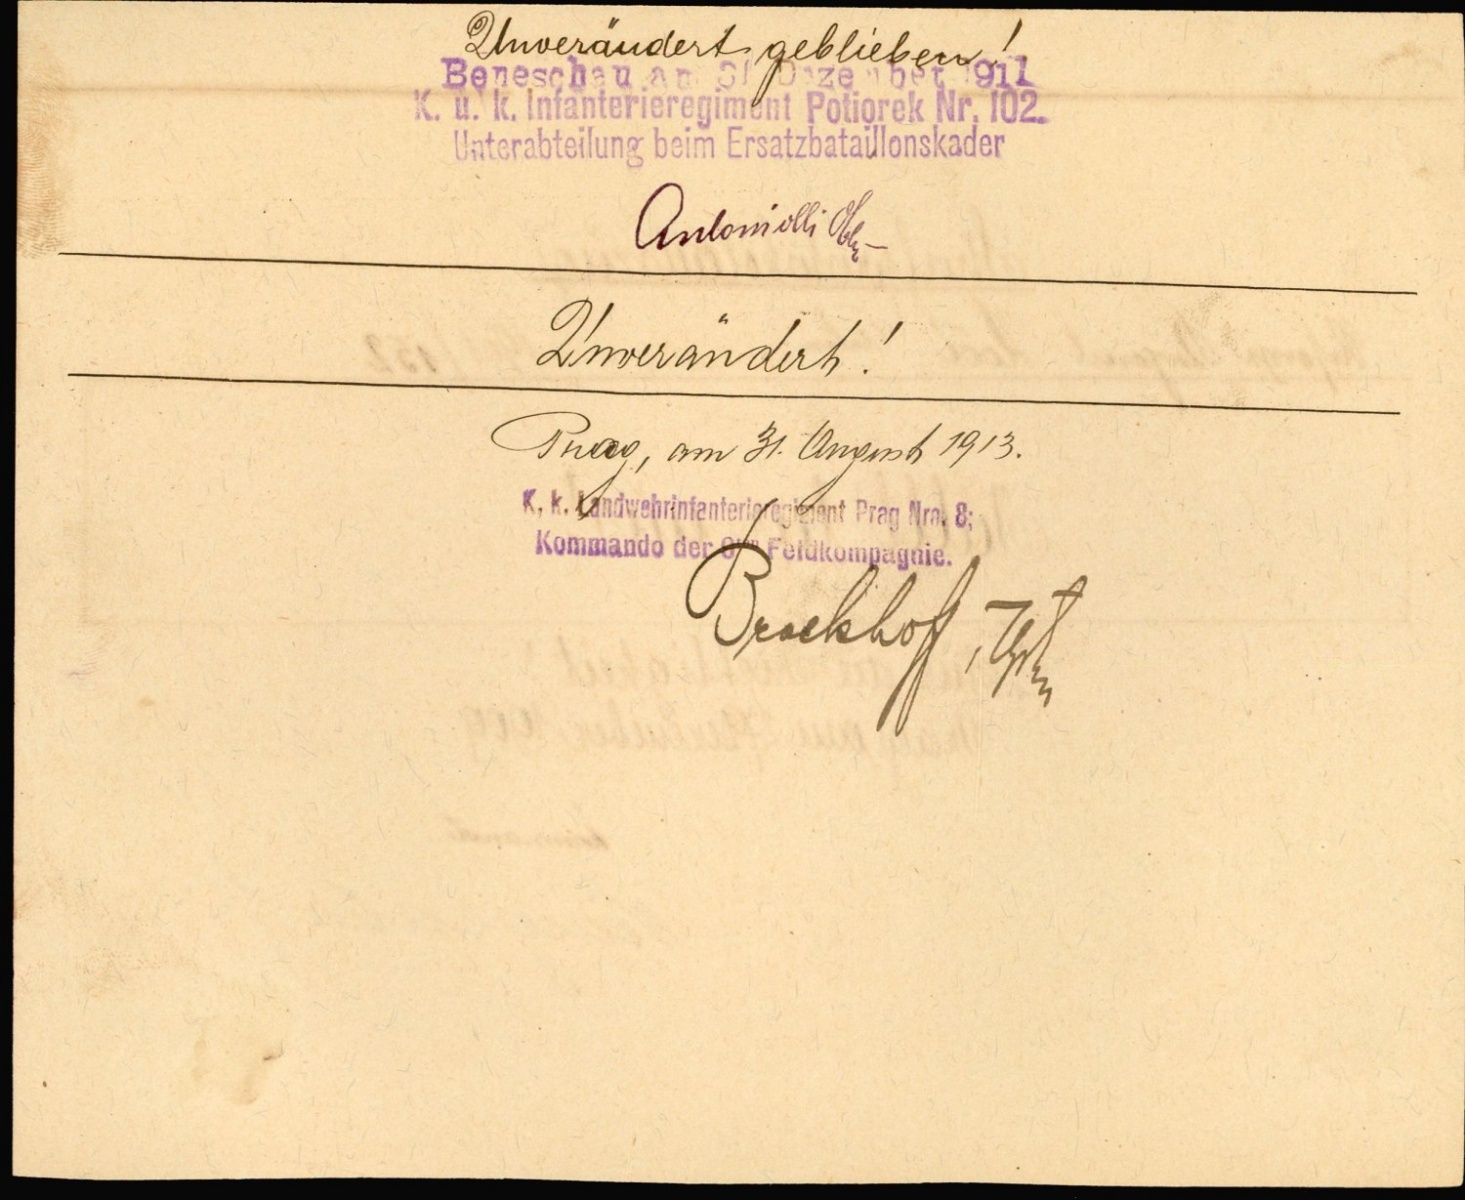 Unverändert geblieben!
Beneschau am 31 Dezember 1911
K. u. k. Infanterieregiment Potiorek Nr. 102.
Unterabteilung beim Ersatzbataillonskader
Antoniolli
Unverändert!
Prag, am 31. August 1913.
K. k. Landwehrinfanterieregiment Prag Nro. 8;
Kommando der Feldkompagnie.
Brockhoff,